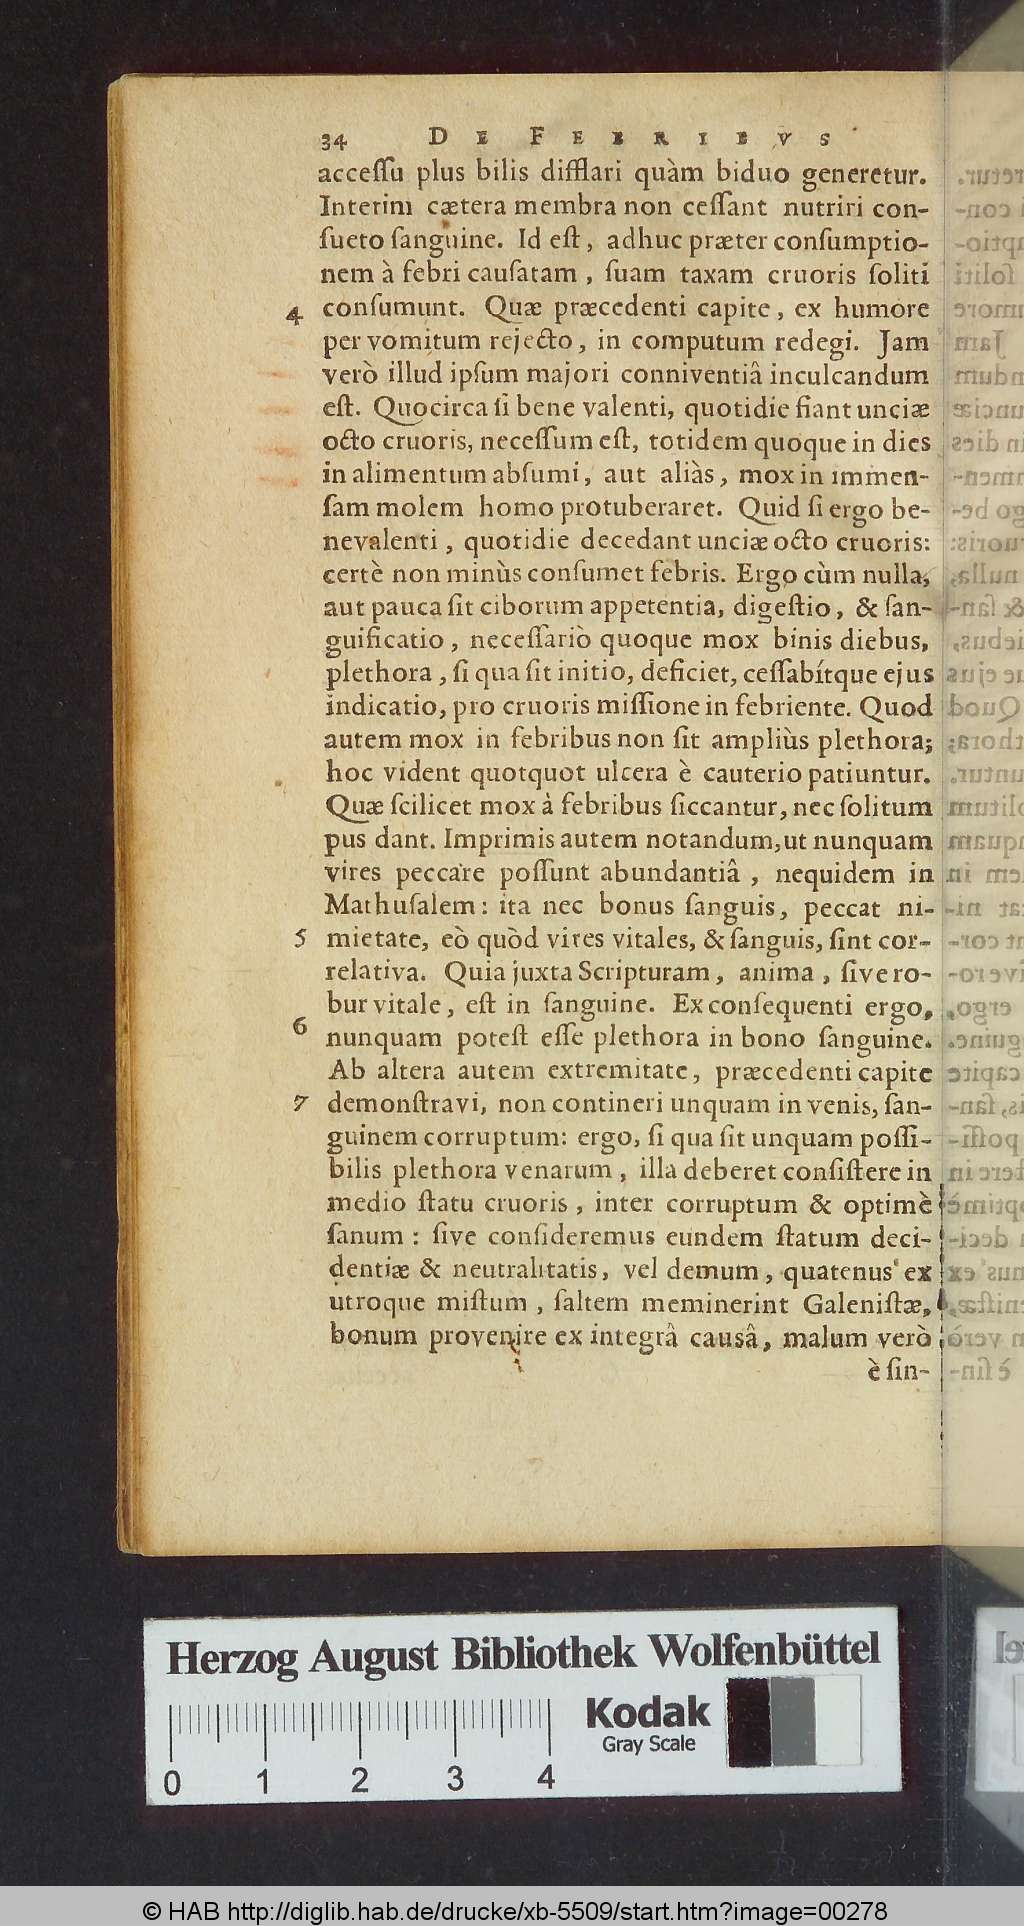 34 DE FEBRIBVS
accessu plus bilis difflari quàm biduo generetur.
Interim cætera membra non cessant nutriri con-
sueto sanguine. Id est, adhuc præter consumptio-
nem à febri causatam, suam taxam cruoris soliti
4 consumunt. Quæ præcedenti capite, ex humore
per vomitum rejecto, in computum redegi. Jam
verò illud ipsum majori conniventiâ inculcandum
est. Quocirca si bene valenti, quotidie fiant unciæ
octo cruoris, necessum est, totidem quoque in dies
in alimentum absumi, aut aliàs, mox in immen-
sam molem homo protuberaret. Quid si ergo be-
nevalenti, quotidie decedant unciæ octo cruoris:
certè non minùs consumet febris. Ergo cùm nulla,
aut pauca sit ciborum appetentia, digestio, & san-
guificatio, necessariò quoque mox binis diebus,
plethora, si qua sit initio, deficiet, cessabítque ejus
indicatio, pro cruoris missione in febriente. Quod
autem mox in febribus non sit ampliùs plethora;
hoc vident quotquot ulcera è cauterio patiuntur.
Quæ scilicet mox à febribus siccantur, nec solitum
pus dant. Imprimis autem notandum, ut nunquam
vires peccare possunt abundantiâ, nequidem in
Mathusalem: ita nec bonus sanguis, peccat ni-
5 mietate, eò quòd vires vitales, & sanguis, sint cor-
relativa. Quia juxta Scripturam, anima, sive ro-
bur vitale, est in sanguine. Ex consequenti ergo,
6 nunquam potest esse plethora in bono sanguine.
Ab altera autem extremitate, præcedenti capite
7 demonstravi, non contineri unquam in venis, san-
guinem corruptum: ergo, si qua sit unquam possi-
bilis plethora venarum, illa deberet consistere in
medio statu cruoris, inter corruptum & optimè
sanum: sive consideremus eundem statum deci-
dentiæ & neutralitatis, vel demum, quatenus ex
utroque mistum, saltem meminerint Galenistæ,
bonum provenire ex integrâ causâ, malum verò
è sin-
Herzog August Bibliothek Wolfenbüttel
Kodak
Gray Scale
0 1 2 3 4
© HAB http://diglib.hab.de/drucke/xb-5509/start.htm?image=00278